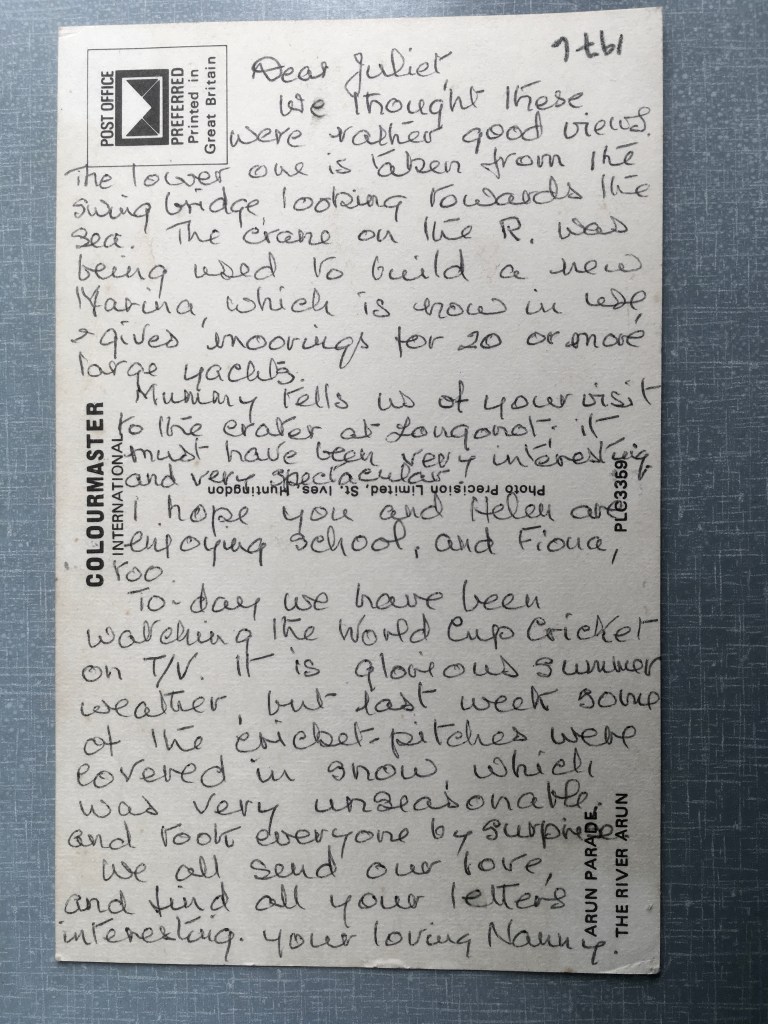 1976
POST OFFICE
PREFERRED
Printed in
Great Britain
Dear Juliet,
We thought these
were rather good views.
The lower one is taken from the
swing bridge, looking towards the
sea. The crane on the R. was
being used to build a new
Marina, which is now in use,
& gives moorings for 20 or more
large yachts.
Mummy tells us of your visit
to the crater at Longonot; it
must have been very interesting
and very spectacular.
I hope you and Helen are
enjoying school, and Fiona,
too.
To-day we have been
watching the World Cup Cricket
on T/V. It is glorious summer
weather, but last week some
of the cricket-pitches were
covered in snow, which
was very unseasonable,
and took everyone by surprise.
We all send our love,
and find all your letters
interesting. Your loving Nanny.
COLOURMASTER
INTERNATIONAL
Photo Precision Limited, St. Ives, Huntingdon
PLC3359
ARUN PARADE,
THE RIVER ARUN